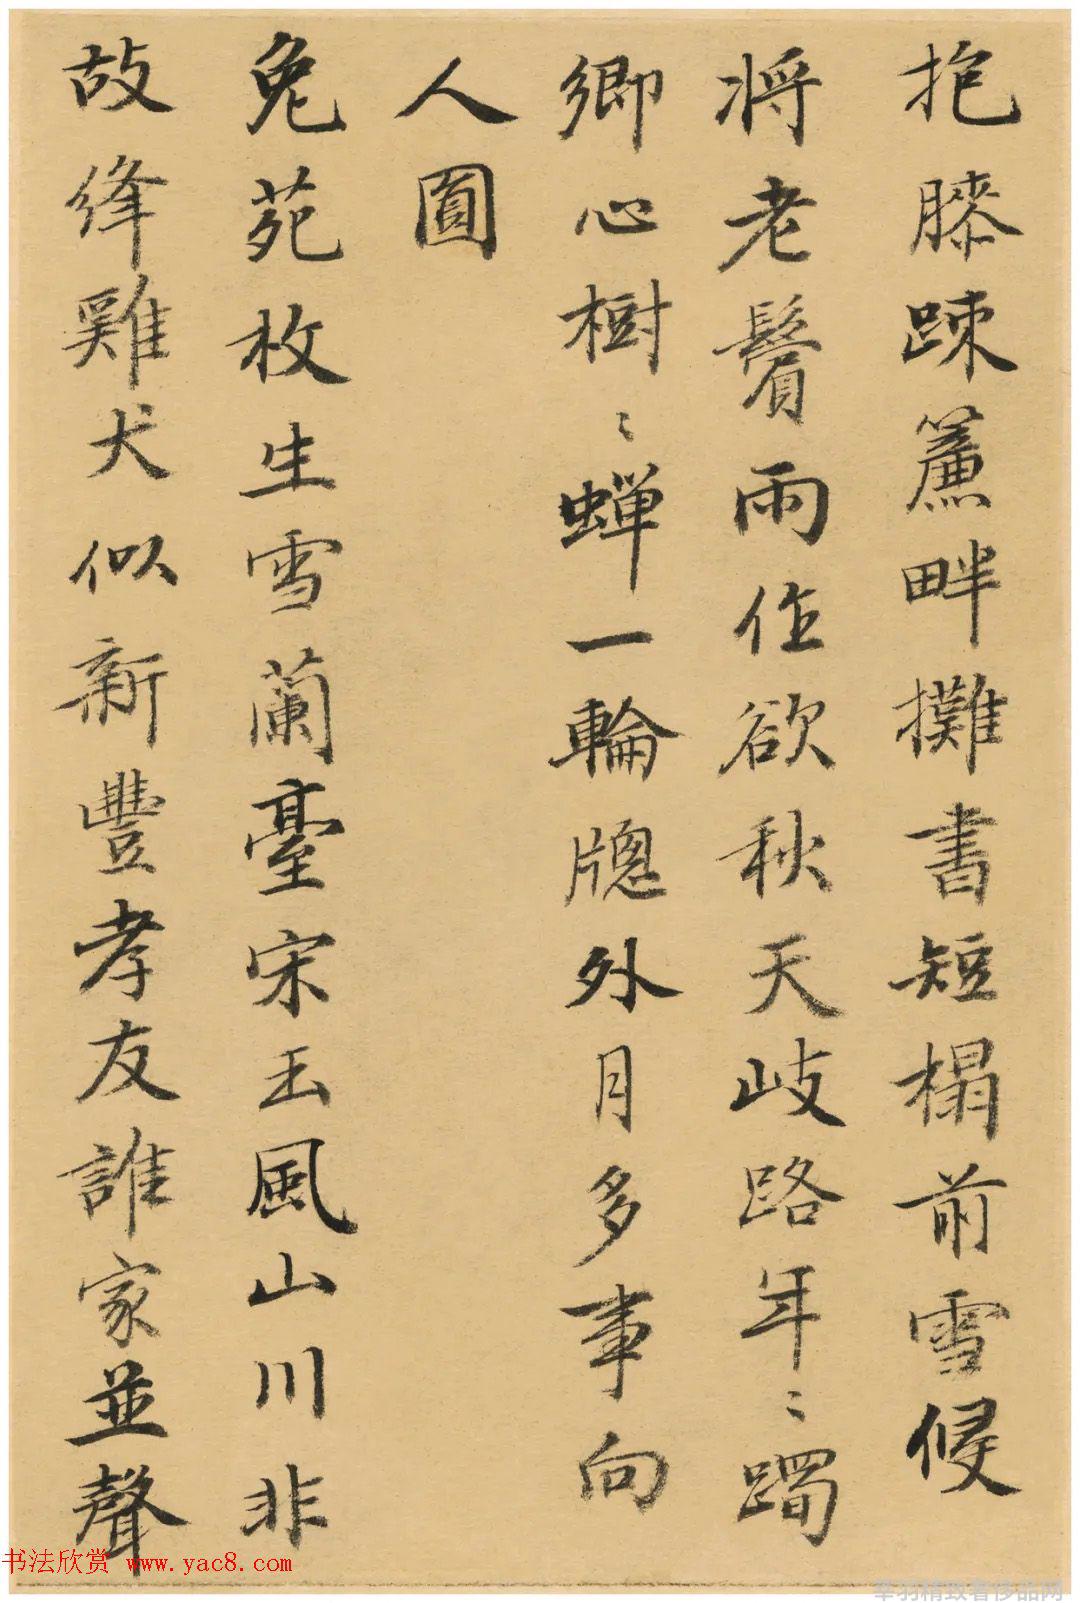 抱膝踈簾畔攤書短榻前雪侵
将老鬢雨作欲秋天歧路年〻躅
鄉心樹〻蝉一輪牕外月多事向
人圎
兔苑枚生雪蘭臺宋玉風山川非
故絳雞犬似新豐孝友誰家並聲
书法欣赏 www.yac8.com